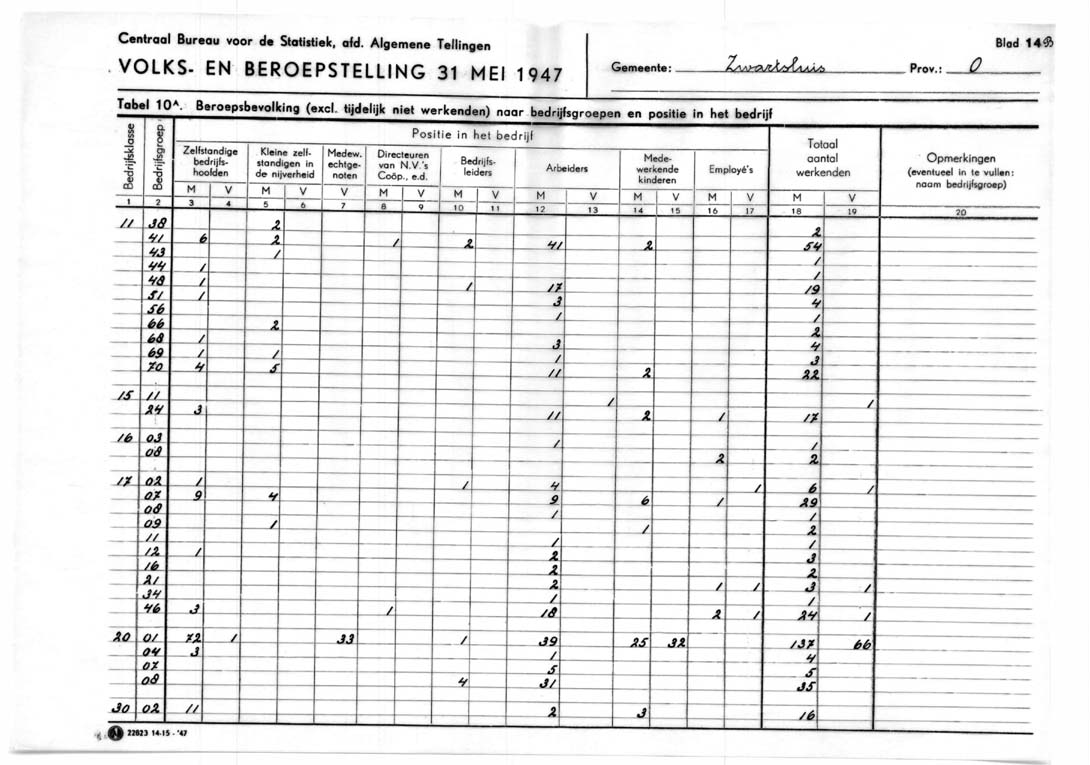 Centraal Bureau voor de Statistiek, afd. Algemene Tellingen
Blad 14B
VOLKS- EN BEROEPSTELLING 31 MEI 1947
Gemeente: Zwartsluis Prov.: O
Tabel 10A. Beroepsbevolking (excl. tijdelijk niet werkenden) naar bedrijfsgroepen en positie in het bedrijf
Bedrijfsklasse
Bedrijfsgroep
Positie in het bedrijf
Zelfstandige bedrijfs- hoofden
Kleine zelf- standigen in de nijverheid
Medew. echtge- noten
Directeuren van N.V.'s Coöp., e.d.
Bedrijfs- leiders
Arbeiders
Mede- werkende kinderen
Employé's
Totaal aantal werkenden
Opmerkingen (eventueel in te vullen: naam bedrijfsgroep)
M V M V V M V M V M V M V M V M V
1 2 3 4 5 6 7 8 9 10 11 12 13 14 15 16 17 18 19 20
11 38 2 2
41 6 2 1 2 41 2 54
43 1 1
44 1 1
48 1 1 17 19
51 1 3 4
56 1 1
66 2 2
68 1 3 4
69 1 1 1 3
70 4 5 11 2 22
15 11 1 1
24 3 11 2 1 17
16 03 1 1
08 2 2
17 02 1 1 4 1 6 1
07 9 4 9 6 1 29
08 1 1
09 1 1 2
11 1 1
12 1 2 3
16 2 2
21 2 1 1 3 1
34 1 1
46 3 1 18 2 1 24 1
20 01 72 1 33 1 39 25 32 137 66
04 3 1 4
07 5 5
08 4 31 35
30 02 11 2 3 16
22623 14-15 - '47